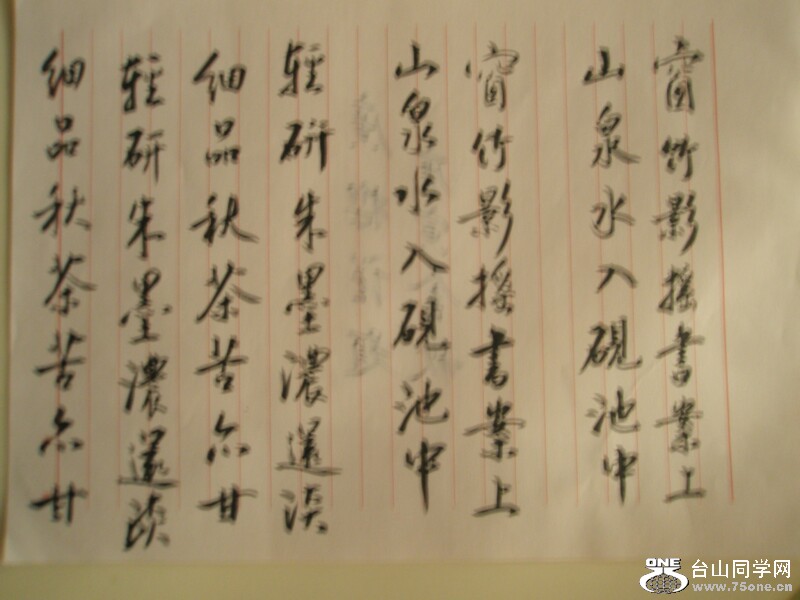 窗竹影摇書案上
山泉水入硯池中
窗竹影摇書案上
山泉水入硯池中
輕研朱墨濃還淡
細品秋茶苦亦甘
輕研朱墨濃還淡
細品秋茶苦亦甘
ONE 台山同学网
www.75one.cn